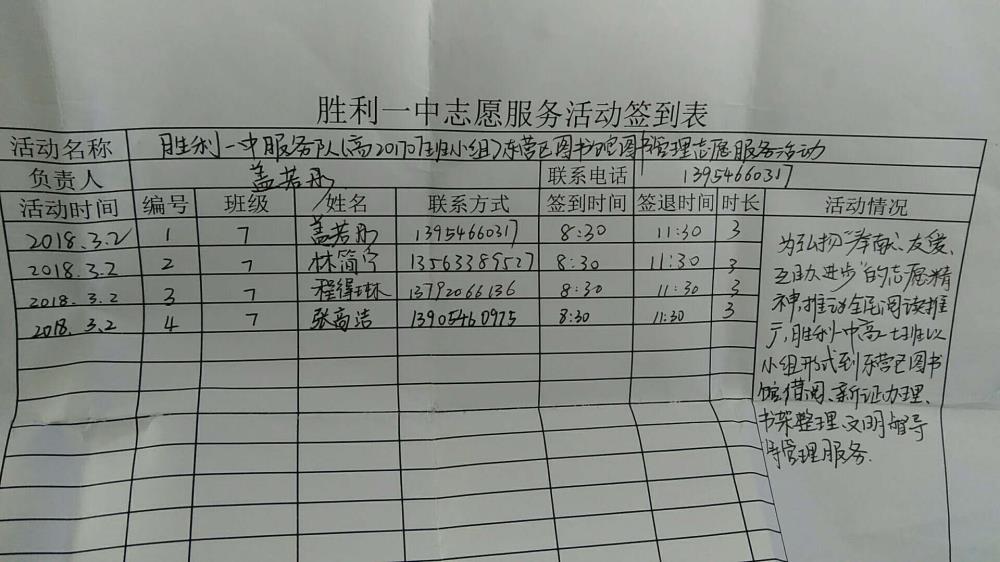 胜利一中志愿服务活动签到表
活动名称 胜利一中服务队(高201707班小组)东营区图书馆图书管理志愿服务活动
负责人 盖若彤 联系电话 13954660317
活动时间 编号 班级 姓名 联系方式 签到时间 签退时间 时长 活动情况
2018.3.2 1 7 盖若彤 13954660317 8:30 11:30 3
2018.3.2 2 7 林简宁 13563389527 8:30 11:30 3
2018.3.2 3 7 程得琳 13792066136 8:30 11:30 3
2018.3.2 4 7 张高洁 13905460975 8:30 11:30 3
为弘扬“奉献、友爱、
互助、进步”的志愿精
神,推动全民阅读推
广,胜利一中高一七班以
小组形式到东营区图书
馆借阅、新证办理、
书架整理、文明督导
等管理服务.